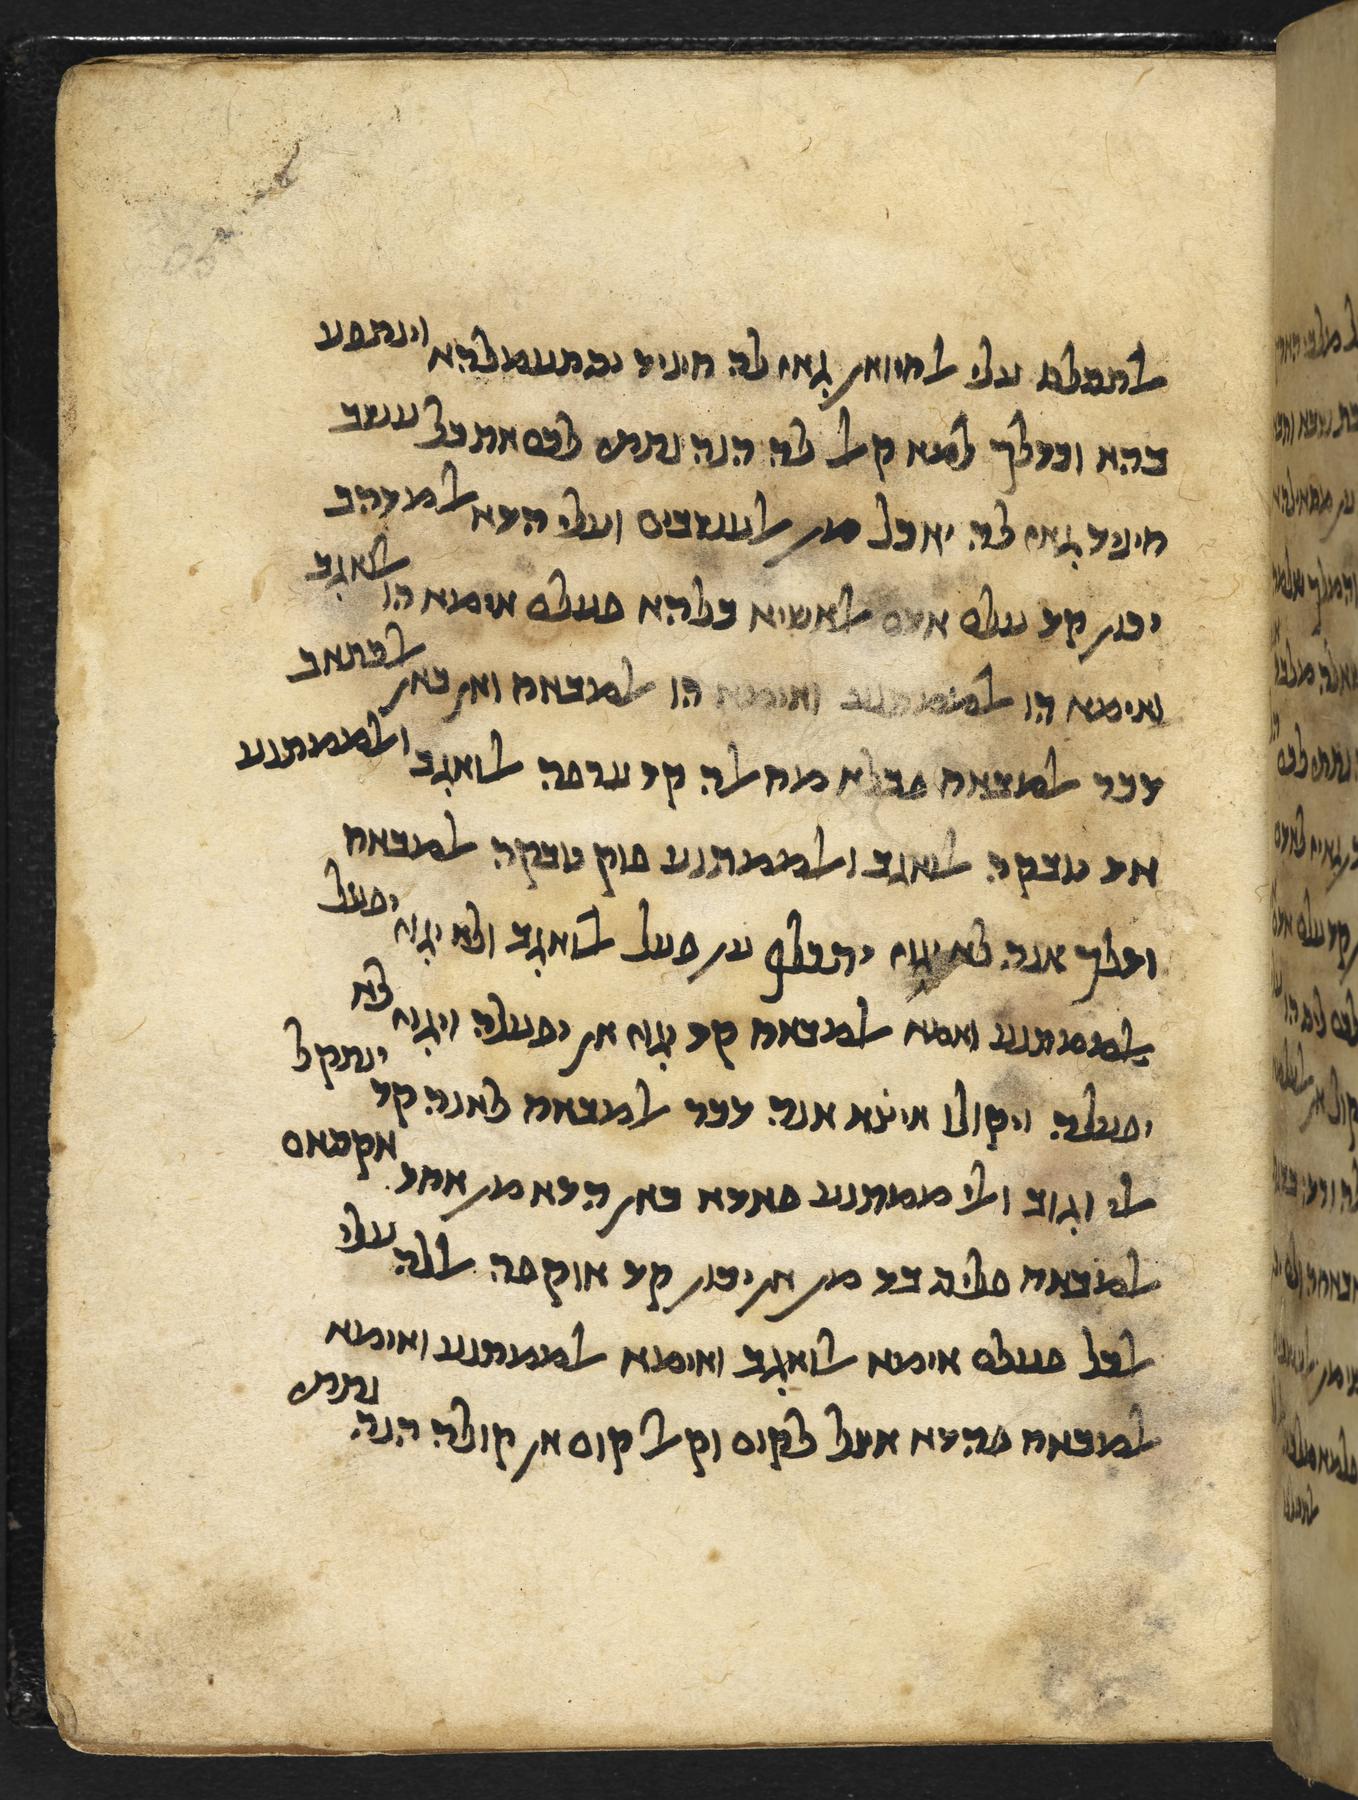 אלתסלט עלי אלחיואן גאז לה חיניד יסתעמלהא וינתפע
בהא וכדלך למא קאל לה הנה נתתי לכם את כל עשב
חיניד גאז לה יאכל מן אלעשבים ועלי הדא אלמדהב
יכון קד עלם אדם אלאשיא כלהא פעלם אימא הו אלואגב
ואימא הו אלממתנע ואימא הו אלמבאח ואן כאן אלכתאב
דכר אלמבאח פבלא מחאלה קד ערפה אלואגב ואלממתנע
אד טבקה אלואגב ואלממתנע פוק טבקה אלמבאח
ודלך אנה לא יגוז יתכלף ען פעל אלואגב ולא יגוז יפעל
אלממתנע ואמא אלמבאח קד יגוז אן יפעלה ויגוז לא
יפעלה ויקולו איצא אנה דכר אלמבאח לאנה קד ינתקל
אלי וגוב ואלי ממתנע פאדא כאן הדא מן אחד אקסאם
אלמבאח פליס בד מן אן יכון קד אוקפה אללה עלי
אלכל פעלם אימא אלואגב ואימא אלממתנע ואימא
אלמבאח פהדא אצל לקום וקאל קום אן קולה הנה נתתי